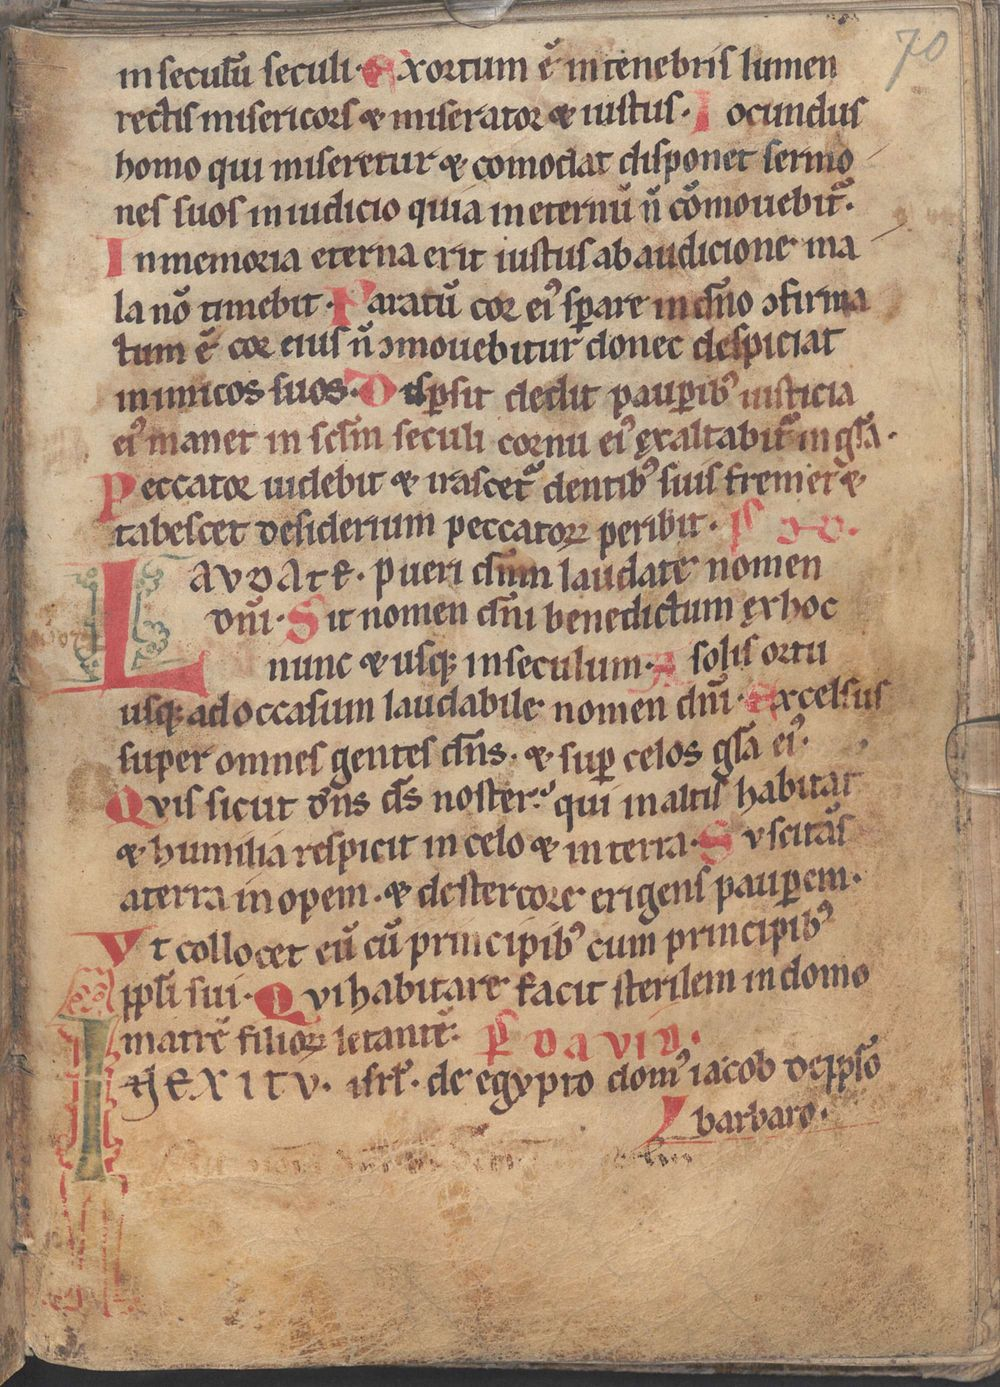 70
in seculū seculi. Exortum ē in tenebris lumen
rectis misericors & miserator & iustus. Iocundus
homo qui miseretur & comodat disponet sermo
nes suos in iudicio quia in eternū n̄ cōmouebit᷑.
In memoria eterna erit iustus ab audicione ma
la nō timebit. Paratū cor ei᾽ sꝑare in dn̄o ꝯfirma
tum ē cor eius n̄ ꝯmouebitur donec despiciat
inimicos suos. Disꝑsit dedit pauꝑib᾽ iusticia
ei᾽ manet in sc̄lm seculi cornu ei᾽ exaltabit᷑ in gl̄a.
Peccator uidebit & irascet᷑ dentib᾽ suis fremet &
tabescet desiderium peccatoꝝ peribit.
LAVDATE. Pueri dn̄m laudate nomen
dn̄i. Sit nomen dn̄i benedictum ex hoc
nunc & usq; in seculum. A solis ortu
usq; ad occasum laudabile nomen dn̄i. Excelsus
super omnes gentes dn̄s. & suꝑ celos gl̄a ei᾽.
Quis sicut dn̄s ds̄ noster. qui in altis habitat
& humilia respicit in celo & in terra. Suscitās
a terra inopem. & de stercore erigens pauꝑem.
Vt collocet eū cū principib᾽ cum principib᾽
ppl̄i sui. Qui habitare facit sterilem in domo
matrē filioꝝ letantē. ps̄ DAVID.
IN EXITV. isrl̄. de egypto dom᾽ iacob de ppl̄o
barbaro.